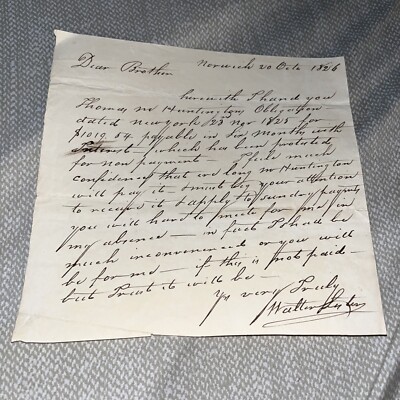 Norwich 20 Octo 1826
Dear Brother
herewith I hand you
Thomas M Huntingtons Obligation
dated New York 23 Nov 1825 for
$1019.54 payable in Six Months with
Interest - which has been protested
for non payment - I feel much
confidence that ere long Mr Huntington
will pay it - I must beg your attention
to receive it & apply to sundry payments
you will have to make for me in
my absence - in fact I shall be
much inconvenienced or you will
be for me - if this is not paid -
but Trust it will be -
Yr very Truly
Walter